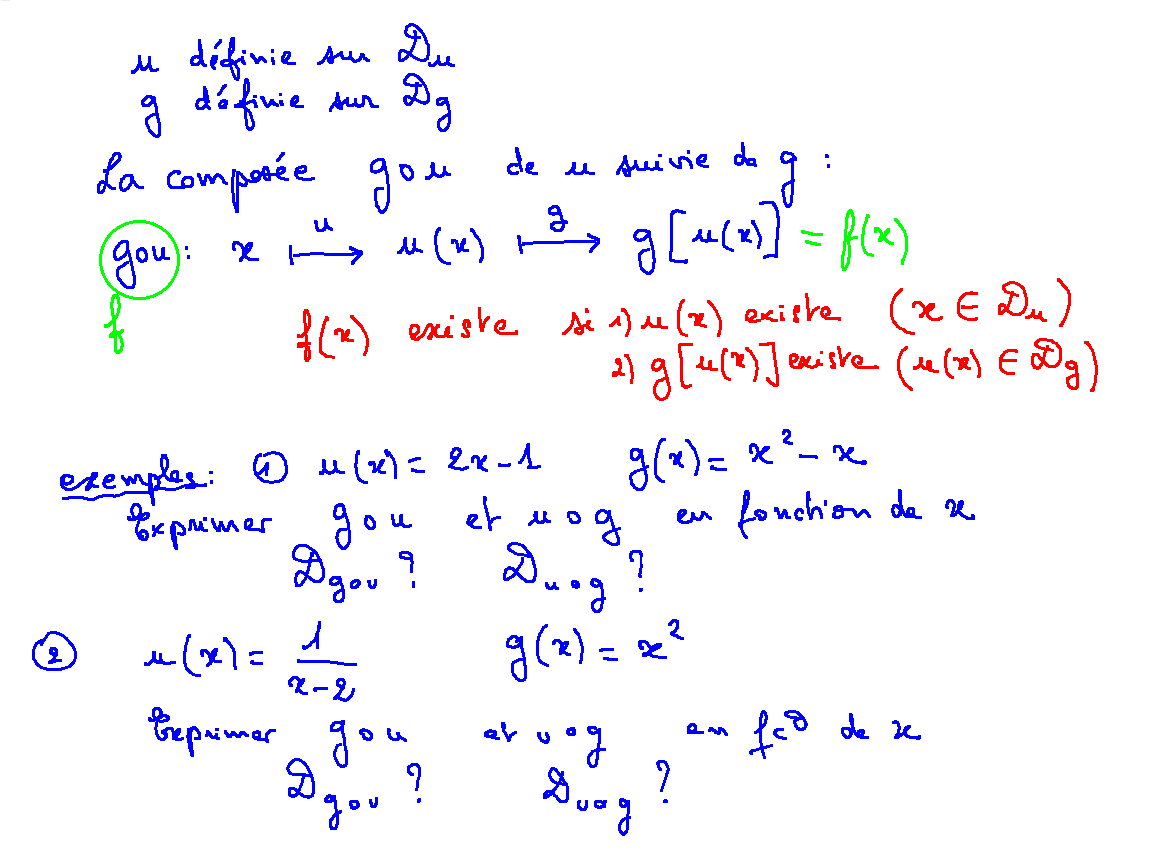 u définie sur Du
g définie sur Dg
La composée gou de u suivie de g :
gou : x ⟼ᵘ u(x) ⟼ᵍ g[u(x)] = f(x)
f
f(x) existe si 1) u(x) existe (x ∈ Du)
2) g[u(x)] existe (u(x) ∈ Dg)
exemples : ① u(x) = 2x-1 g(x) = x² - x
Exprimer gou et uog en fonction de x
Dgou ? Duog ?
② u(x) = 1/(x-2) g(x) = x²
Exprimer gou et uog en fc° de x
Dgou ? Duog ?